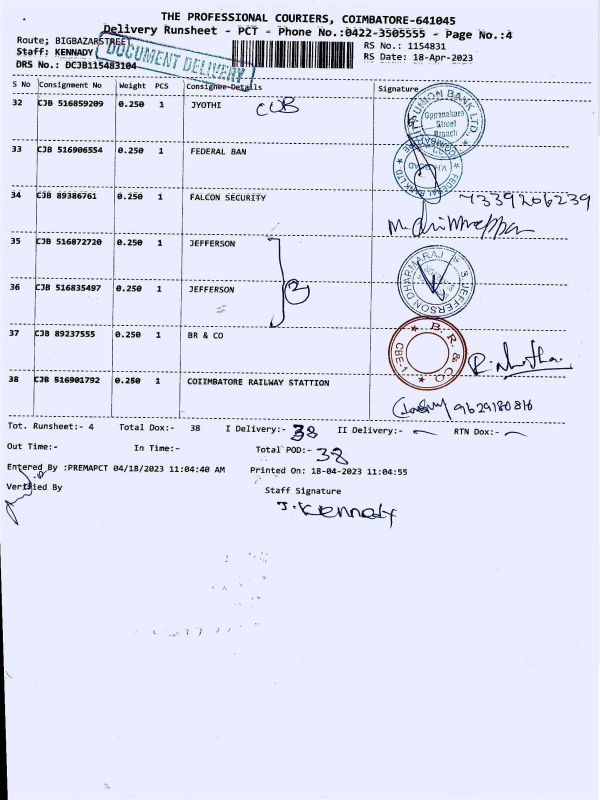 THE PROFESSIONAL COURIERS, COIMBATORE-641045
Delivery Runsheet - PCT - Phone No.:0422-3505555 - Page No.:4
Route; BIGBAZARSTREET
RS No.: 1154831
Staff: KENNADY
RS Date: 18-Apr-2023
DRS No.: DCJB115483104
DOCUMENT DELIVERY
S No Consignment No Weight PCS Consignee Details Signature
32 CJB 516859209 0.250 1 JYOTHI CUB
UNION BANK LTD.
Oppanakara
Street
Branch
33 CJB 516906554 0.250 1 FEDERAL BAN
FEDERAL BANK LTD.
34 CJB 89386761 0.250 1 FALCON SECURITY 7339206239
35 CJB 516872720 0.250 1 JEFFERSON
36 CJB 516835497 0.250 1 JEFFERSON 2
S. JEFFERSON DHARMARAJ
37 CJB 89237555 0.250 1 BR & CO
B. R. & CO
CBE-1
38 CJB 516901792 0.250 1 COIIMBATORE RAILWAY STATTION
9629180816
Tot. Runsheet:- 4 Total Dox:- 38 I Delivery:- 38 II Delivery:- RTN Dox:-
Out Time:- In Time:- Total POD:- 38
Entered By :PREMAPCT 04/18/2023 11:04:40 AM Printed On: 18-04-2023 11:04:55
Verified By Staff Signature
J. Kennady